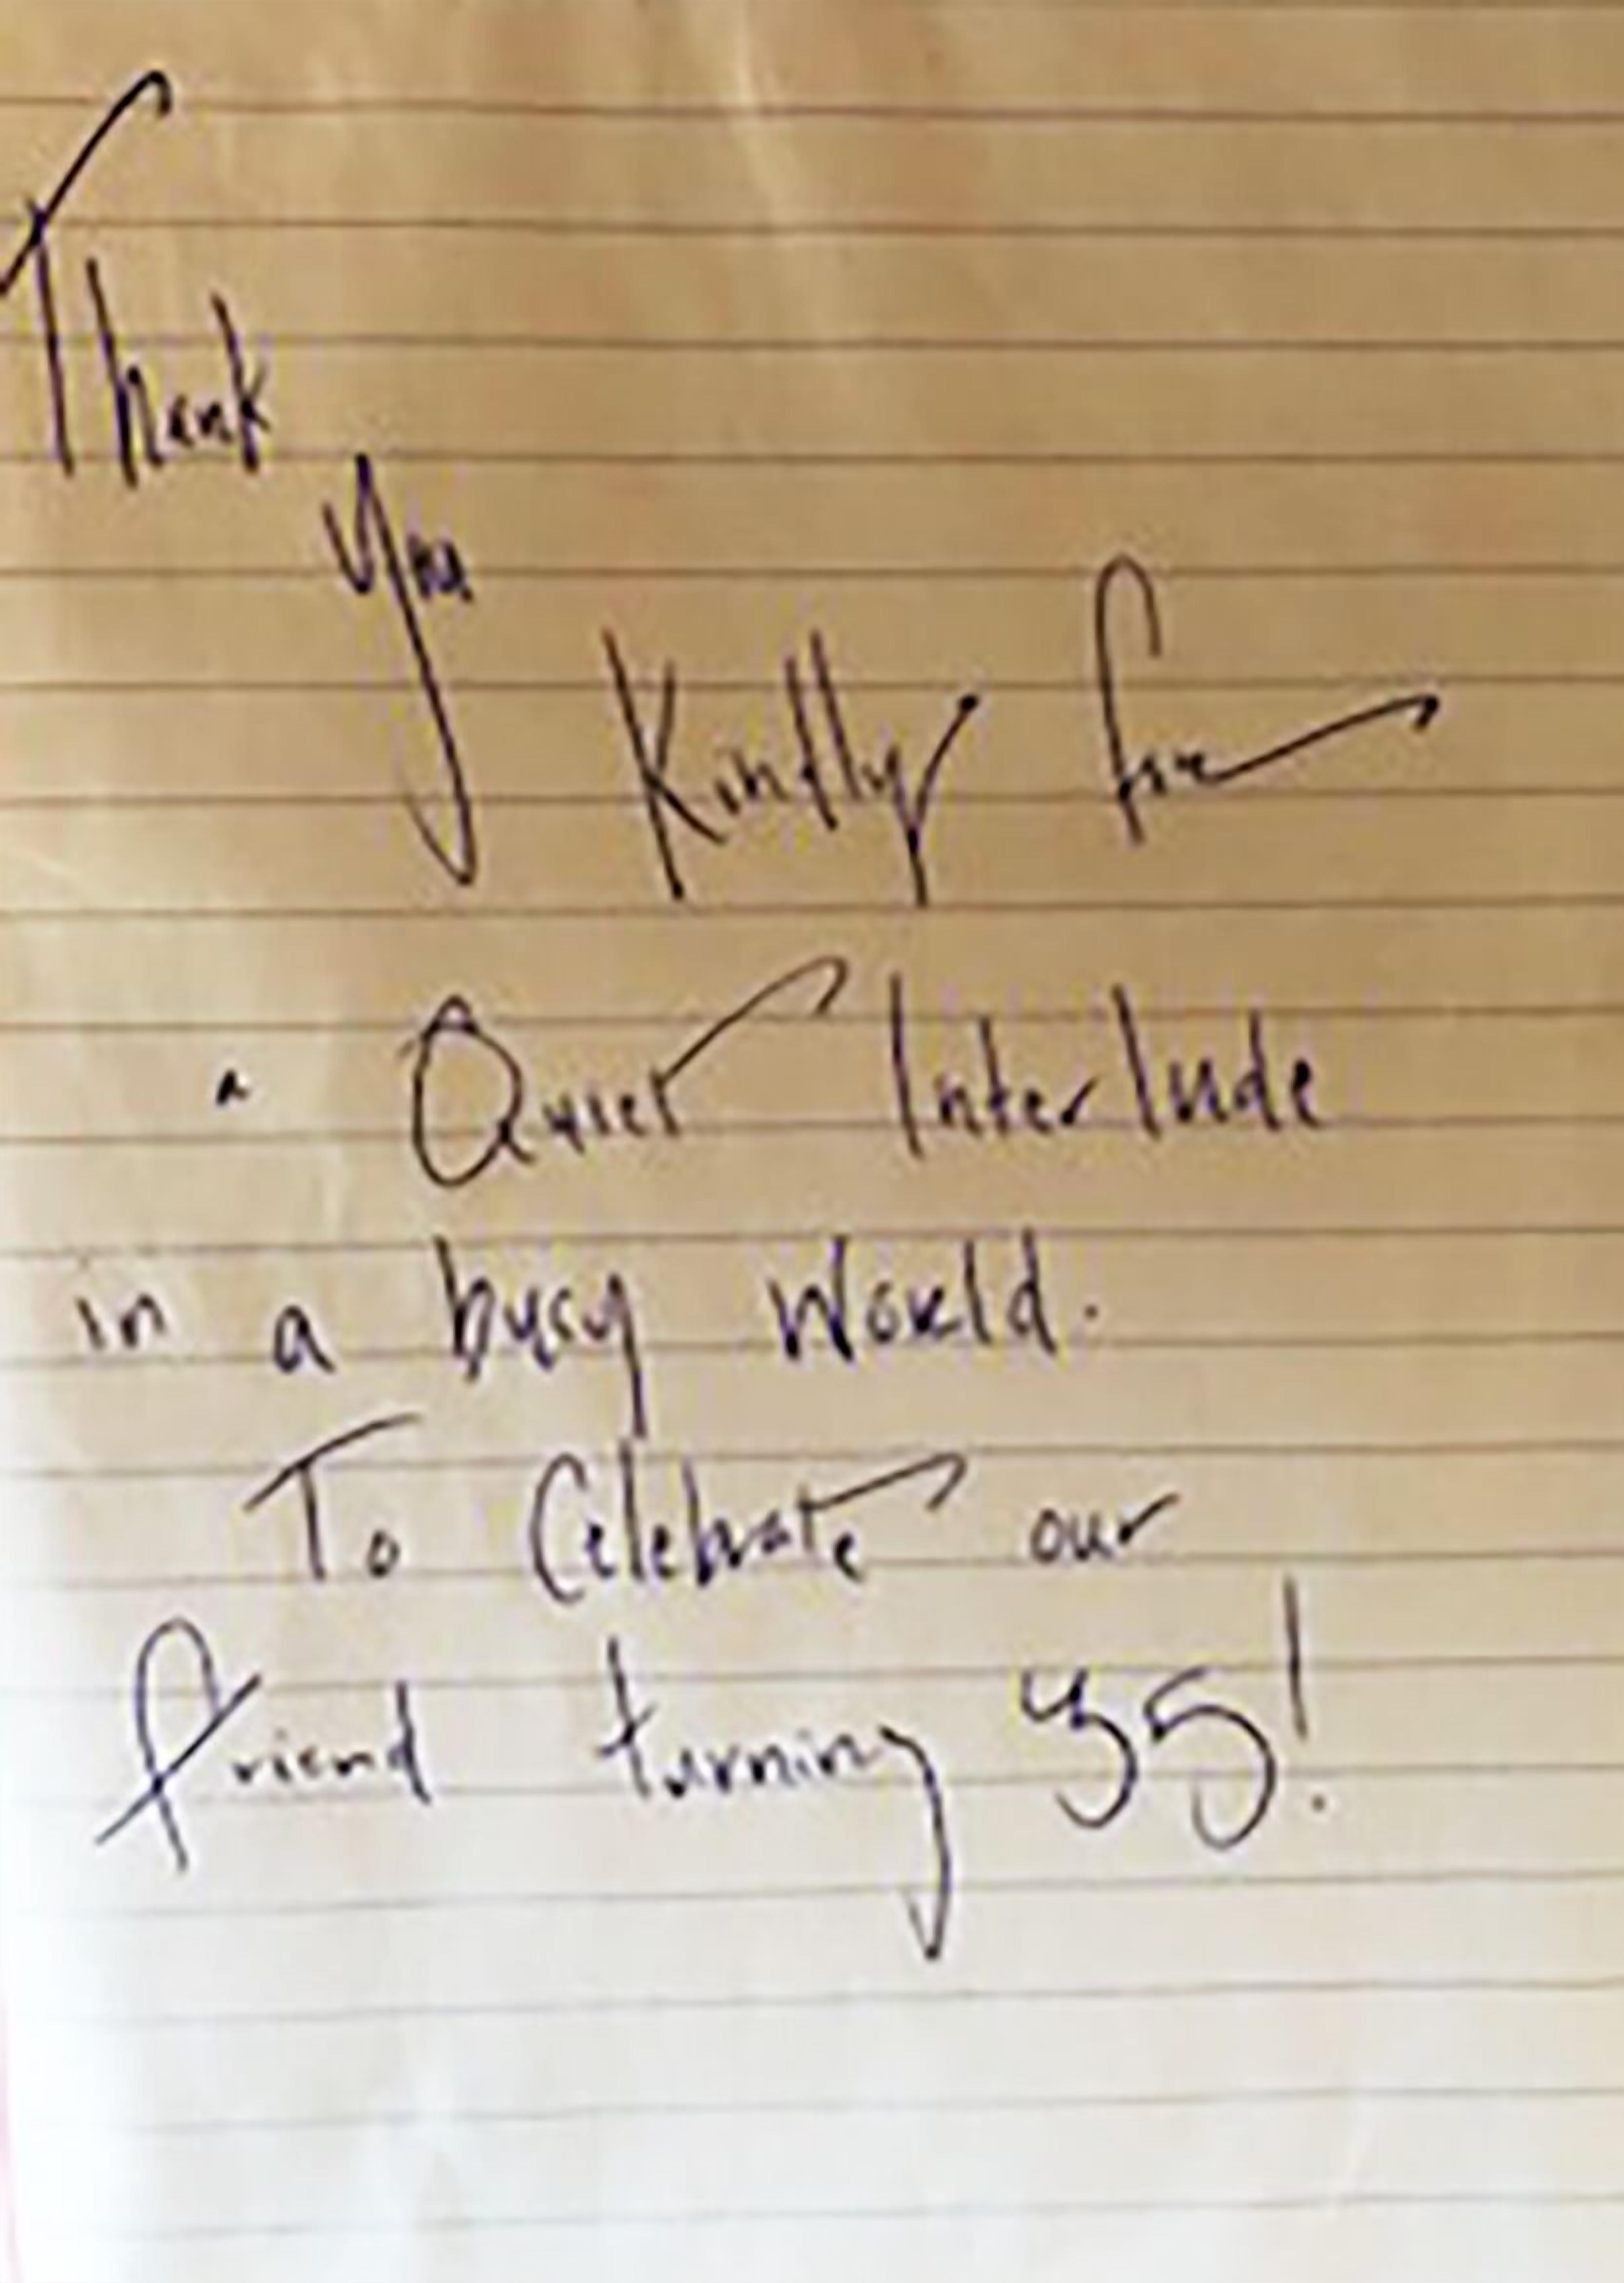 Thank
you
Kindly for
a Quiet Interlude
in a busy World.
To Celebrate our
friend turning 35!